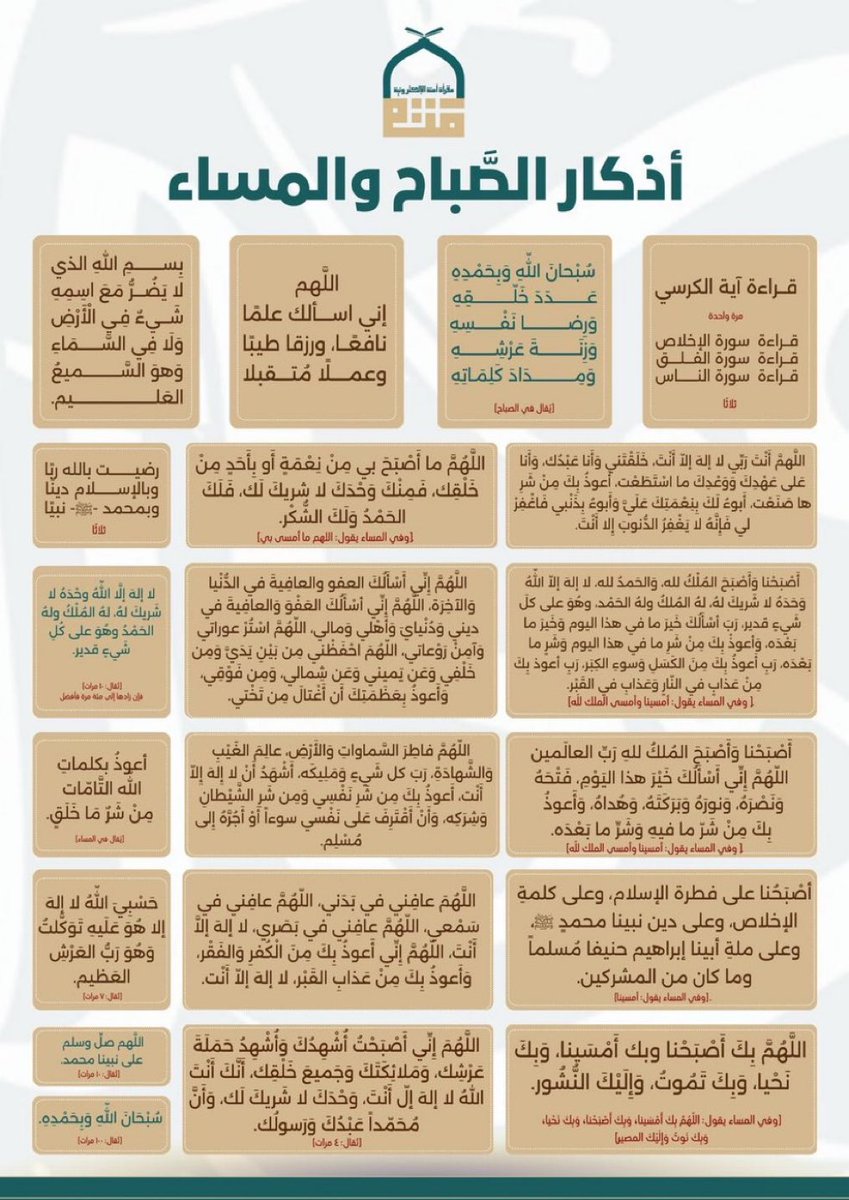 مقرأة آمنة الإلكترونية
أذكار الصَّباح والمساء
قـراءة آية الكرسي
مرة واحدة
قـراءة سورة الإخلاص
قـراءة سورة الفلـق
قـراءة سورة النـاس
ثلاثًا
سُبْحانَ اللّهِ وَبِحَمْدِهِ
عَـدَدَ خَلْـقِهِ
وَرِضـا نَفْـسِهِ
وَزِنَـةَ عَرْشِـهِ
وَمِـدَادَ كَلِمَاتِهِ
[يُقال في الصباح]
اللَّهم
إني اسـألك علمًا
نافعًـا، ورزقا طيبًا
وعمـلًا مُتـقبلا
بِسـمِ اللهِ الذي
لا يَضُـرُّ مَعَ اسمِهِ
شَـيءٌ فِي الْأَرْضِ
وَلَا فِي السَّـمَاءِ
وَهوَ السَّـمِيعُ
العَلـيم.
اللهمَّ أَنْتَ رَبِّي لا إلهَ إلاّ أَنْتَ، خَلَقْتَني وَأنا عَبْدُك، وَأنا
عَلى عَهْدِكَ وَوَعْدِكَ ما اسْتَطَعْت، أَعوذُ بِكَ مِنْ شَرِّ
ما صَنَعْت، أَبوءُ لَكَ بِنِعْمَتِكَ عَلَيَّ وَأَبوءُ بِذَنْبي فَاغْفِرْ
لي فَإِنَّهُ لا يَغْفِرُ الذُّنوبَ إِلا أَنْتَ.
اللَّهُمَّ ما أَصْبَحَ بي مِنْ نِعْمَةٍ أَو بِأَحَدٍ مِنْ
خَلْقِك، فَمِنْكَ وَحْدَكَ لا شريكَ لَك، فَلَكَ
الحَمْدُ وَلَكَ الشُّكْر.
[وفي المساء يقول: اللهم ما أمسى بي]
رضيـت بالله ربًا
وبالإسـلام دينًا
وبمحمد -ﷺ- نبيًا
ثلاثًا
أَصْبَحْنا وَأَصْبَحَ المُلْكُ لله، وَالحَمدُ لله، لا إلهَ إلاّ اللهُ
وَحْدَهُ لا شَريكَ لهُ، لهُ المُلكُ ولهُ الحَمْد، وهُوَ على كلّ
شَيءٍ قدير، رَبِّ أسْألُكَ خَيرَ ما في هذا اليوم وَخَيرَ ما
بَعْدَه، وَأَعوذُ بِكَ مِنْ شَرِّ ما في هذا اليوم وَشَرِّ ما
بَعْدَه، رَبِّ أَعوذُ بِكَ مِنَ الكَسَلِ وَسوءِ الكِبَر، رَبِّ أَعوذُ بِكَ
مِنْ عَذابٍ في النّارِ وَعَذابٍ في القَبْر.
[وفي المساء يقول: أمسينا وأمسى الملك لله]
اللَّهُمَّ إنِّي أَسْأَلُكَ العفو والعافِيةَ في الدُّنْيا
وَالآخِرَة، اللَّهُمَّ إنِّي أَسْأَلُكَ العَفْوَ وَالعافِيةَ في
ديني وَدُنْيايَ وَأهْلي وَمالي، اللَّهُمَّ اسْتُرْ عوراتي
وَآمِنْ رَوْعاتي، اللَّهُمَّ احْفَظْني مِن بَيْنِ يَدَيَّ وَمِن
خَلْفي وَعَن يَميني وَعَن شِمالي، وَمِن فَوْقي،
وَأَعوذُ بِعَظَمَتِكَ أَن أُغْتَالَ مِن تَحْتي.
لا إلهَ إلَّا اللَّهُ وحْدَهُ لا
شَرِيكَ لهُ، لهُ المُلْكُ ولهُ
الحَمْدُ وهُوَ على كُلِّ
شَيءٍ قدير.
[تُقال: ١٠ مرات]
فإن زادها إلى مئة مرة فأفضل
أَصْبَحْنا وَأَصْبَحَ المُلكُ للهِ رَبِّ العالَمين
اللَّهُمَّ إنِّي أَسْأَلُكَ خَيْرَ هذا اليَوْم، فَتْحَهُ
وَنَصْرَهُ، وَنورَهُ وَبَرَكَتَهُ، وَهُداهُ، وَأَعوذُ
بِكَ مِنْ شَرِّ ما فيهِ وَشَرِّ ما بَعْدَه.
[وفي المساء يقول: أمسينا وأمسى الملك لله]
اللَّهُمَّ فاطِرَ السَّماواتِ وَالأَرْضِ، عالِمَ الغَيْبِ
وَالشَّهادَةِ، رَبَّ كل شَيءٍ وَمَلِيكَه، أَشْهَدُ أَنْ لا إلهَ إلاّ
أَنْت، أَعوذُ بِكَ مِن شَرِّ نَفْسي وَمِن شَرِّ الشَّيْطانِ
وَشِرَكِه، وَأَنْ أَقْتَرِفَ على نَفْسي سوءاً أَوْ أَجُرَّهُ إلى
مُسْلِم.
أعوذُ بكلماتِ
اللَّهِ التَّامَّات
مِنْ شَرِّ مَا خَلَقٍ.
[يُقال في المساء]
أصْبَحْنا على فطرة الإسلام، وعلى كلمةِ
الإخلاص، وعلى دين نبينا محمدٍ ﷺ،
وعلى ملةِ أبينا إبراهيم حنيفا مُسلماً
وما كان من المشركين.
[وفي المساء يقول: أمسينا]
اللَّهُمَّ عافِني في بَدَني، اللَّهُمَّ عافِني في
سَمْعي، اللَّهُمَّ عافِني في بَصَري، لا إلهَ إلاَّ
أَنْتَ، اللَّهُمَّ إنِّي أَعوذُ بِكَ مِنَ الْكُفرِ وَالفَقْر،
وَأَعوذُ بِكَ مِنْ عَذابِ القَبْر، لا إلهَ إلاّ أَنْت.
حَسْبِيَ اللَّهُ لا إلهَ
إلا هُوَ عَلَيهِ تَوَكَّلتُ
وَهُوَ رَبُّ العَرْشِ
العَظيم.
[تُقال: ٧ مرات]
اللَّهُمَّ بِكَ أَصْبَحْنا وبك أَمْسَينا، وَبِكَ
نَحْيا، وَبِكَ تَمُوتُ، وَإِلَيْكَ النُّشُور.
[وفي المساء يقول: اللَّهُمَّ بِكَ أَمْسَينا، وَبِكَ أَصْبَحْنا، وَبِكَ نَحْيا،
وَبِكَ نَموتُ وَإِلَيْكَ المصير]
اللَّهُمَّ إنِّي أَصْبَحْتُ أُشْهِدُكَ وَأُشْهِدُ حَمَلَةَ
عَرْشِك، وَمَلائِكَتَكَ وَجَميعَ خَلْقِك، أَنَّكَ أَنْتَ
اللهُ لا إلهَ إلّ أَنْتَ، وَحْدَكَ لا شَريكَ لَك، وَأَنَّ
مُحَمّداً عَبْدُكَ وَرَسولُك.
[تُقال: ٤ مرات]
اللَّهم صلِّ وسلم
على نبينا محمد.
[تُقال: ١٠ مرات]
سُبْحَانَ اللَّهِ وَبِحَمْدِهِ.
[تُقال: ١٠٠ مرات]